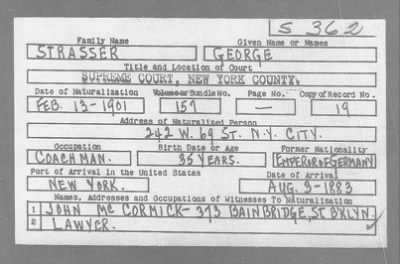 S 362
Family Name Given Name or Names
STRASSER GEORGE
Title and Location of Court
SUPREME COURT, NEW YORK COUNTY.
Date of Naturalization Volume or Bundle No. Page No. Copy of Record No.
FEB. 13-1901 157 — 19
Address of Naturalized Person
242 W. 69 ST. N.Y. CITY.
Occupation Birth Date or Age Former Nationality
COACHMAN. 35 YEARS. EMPEROR OF GERMANY
Port of Arrival in the United States Date of Arrival
NEW YORK. AUG. 3-1883
Names, Addresses and Occupations of Witnesses To Naturalization
1 JOHN MC CORMICK-373 BAINBRIDGE, ST. BKLYN.
2 LAWYER.